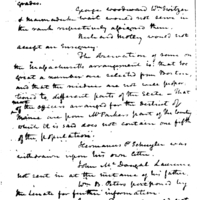 grades.
George Woodward Wm Switzer
& Wait would not serve in
the rank respectively assigned them.
Richard Motley would not
accept an Ensigncy.
The observation of some on
the Massachusetts arrangement is that too
great a number are selected from Boston,
and that the residue are not well propor
tioned to different parts of the State – That
the officers arranged for the District of
Maine are from Mr Parkers part of the country
which it is said does not contain one fifth
of the population.
Hermanus P Schuyler was
withdrawn upon his own letter.
John McDougal Laurance
not sent in at the instance of his father.
Wm B Peters postponed by
the Senate for further information